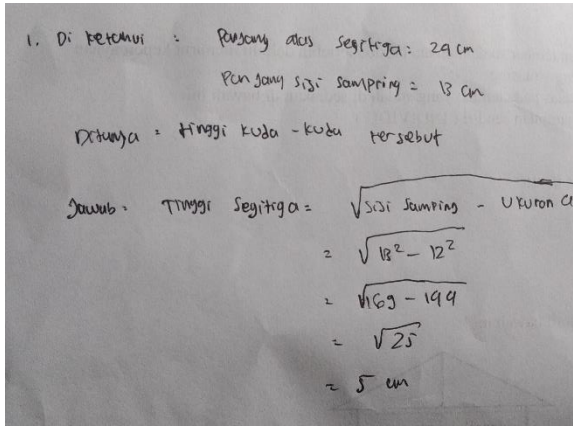 1. Diketahui : Panjang alas segitiga : 24 cm
Panjang sisi samping = 13 cm
Ditanya = tinggi kuda-kuda tersebut
Jawab : Tinggi segitiga = √sisi samping - Ukuran a
= √13² - 12²
= √169 - 144
= √25
= 5 cm